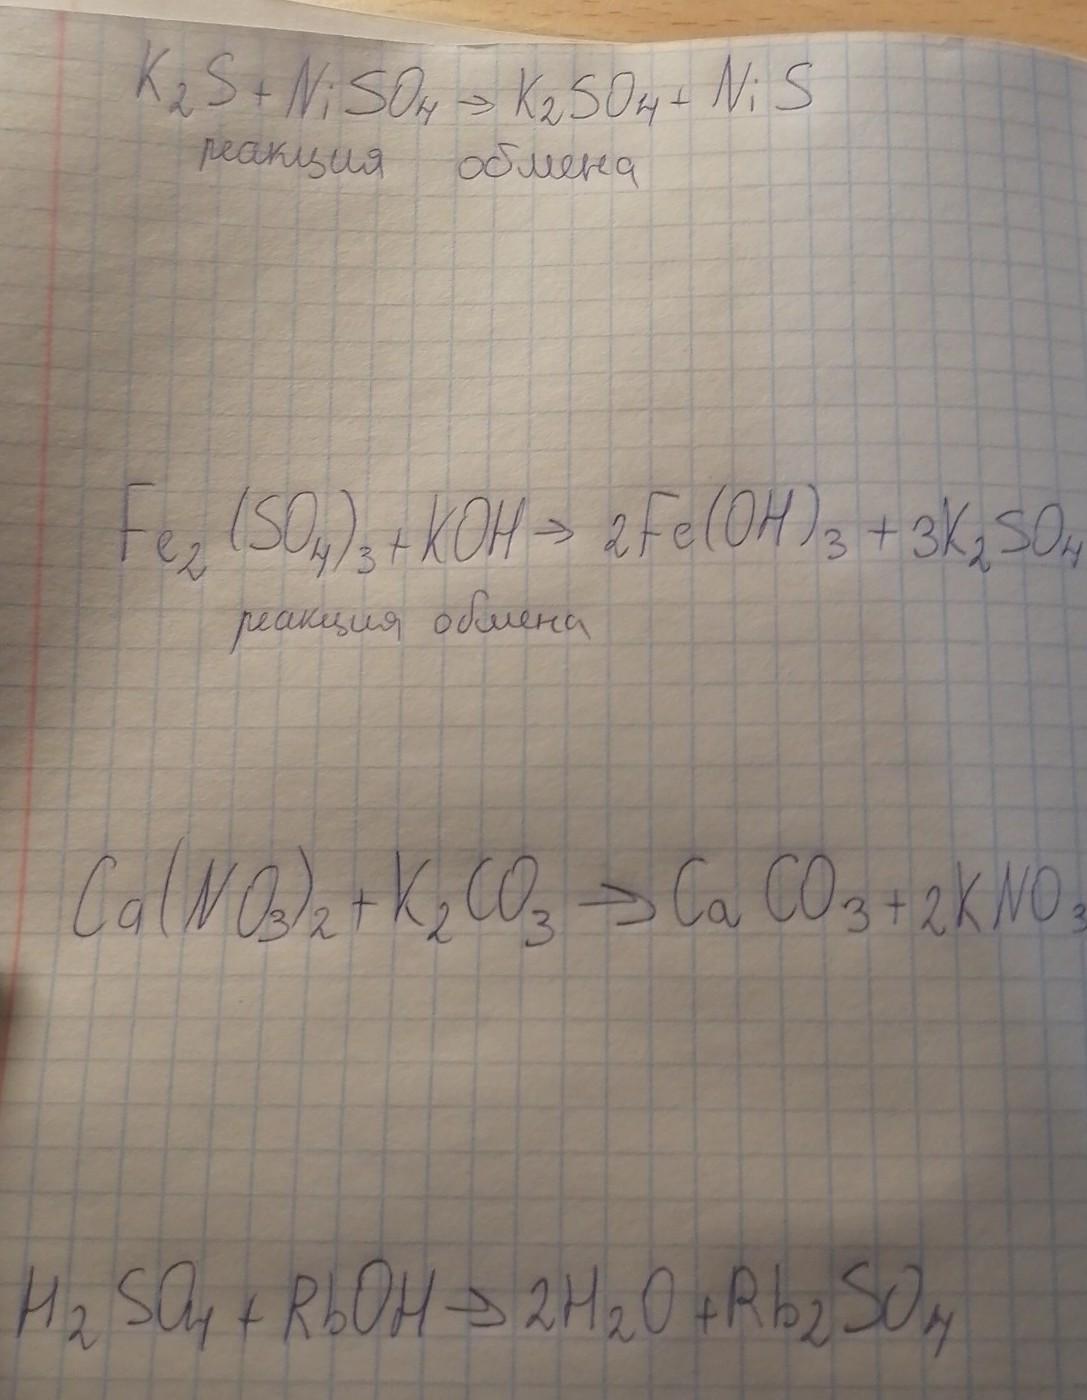 K₂S + NiSO₄ → K₂SO₄ + NiS
реакция обмена
Fe₂(SO₄)₃ + KOH → 2Fe(OH)₃ + 3K₂SO₄
реакция обмена
Ca(NO₃)₂ + K₂CO₃ → CaCO₃ + 2KNO₃
H₂SO₄ + RbOH → 2H₂O + Rb₂SO₄